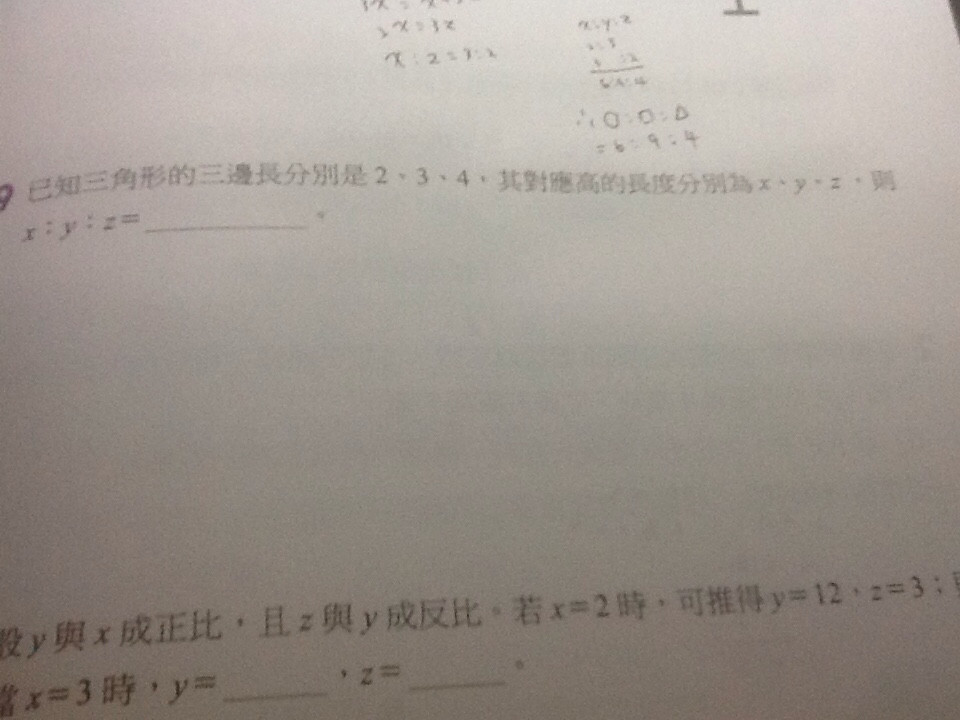 x:y:z
3x=3z
x:2=3:2
∴○:○:△
=6:9:4
9 已知三角形的三邊長分別是2、3、4,其對應高的長度分別為x、y、z,則
x:y:z=
設y與x成正比,且z與y成反比。若x=2時,可推得y=12,z=3;
當x=3時,y= ,z= 。